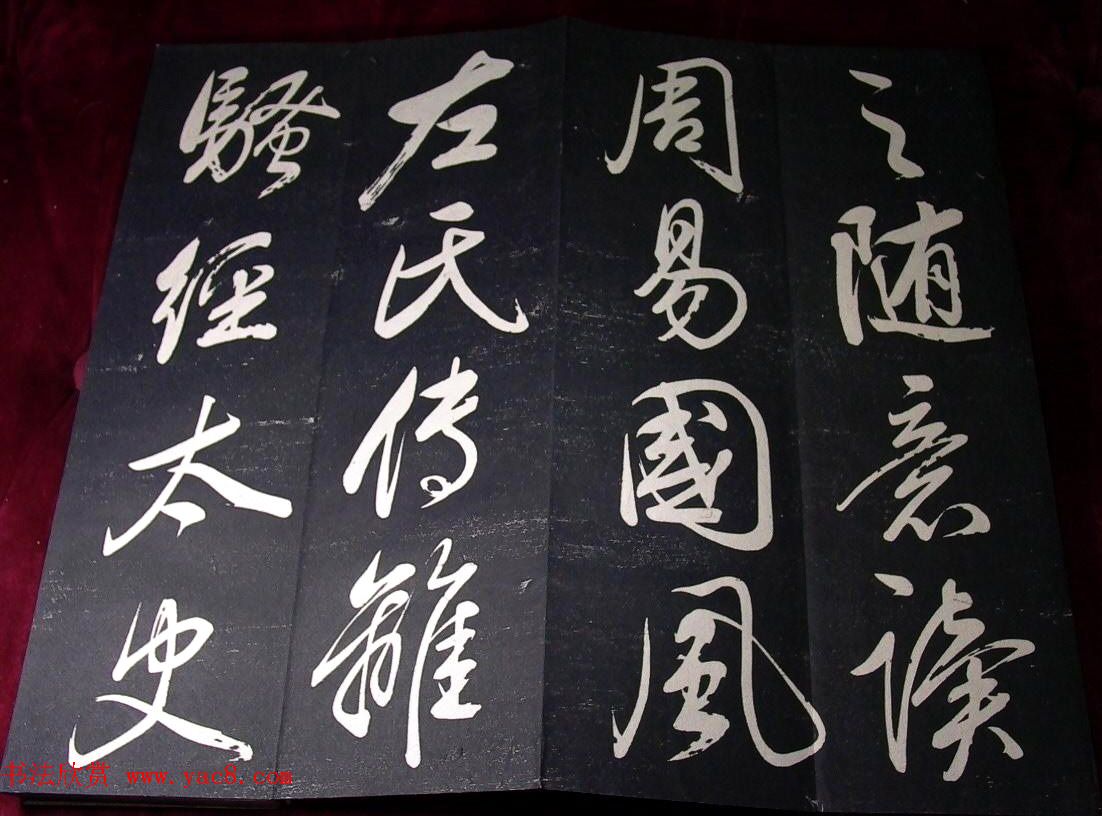 之随意读
周易國風
左氏傳離
騷經太史
书法欣赏 www.yac8.com